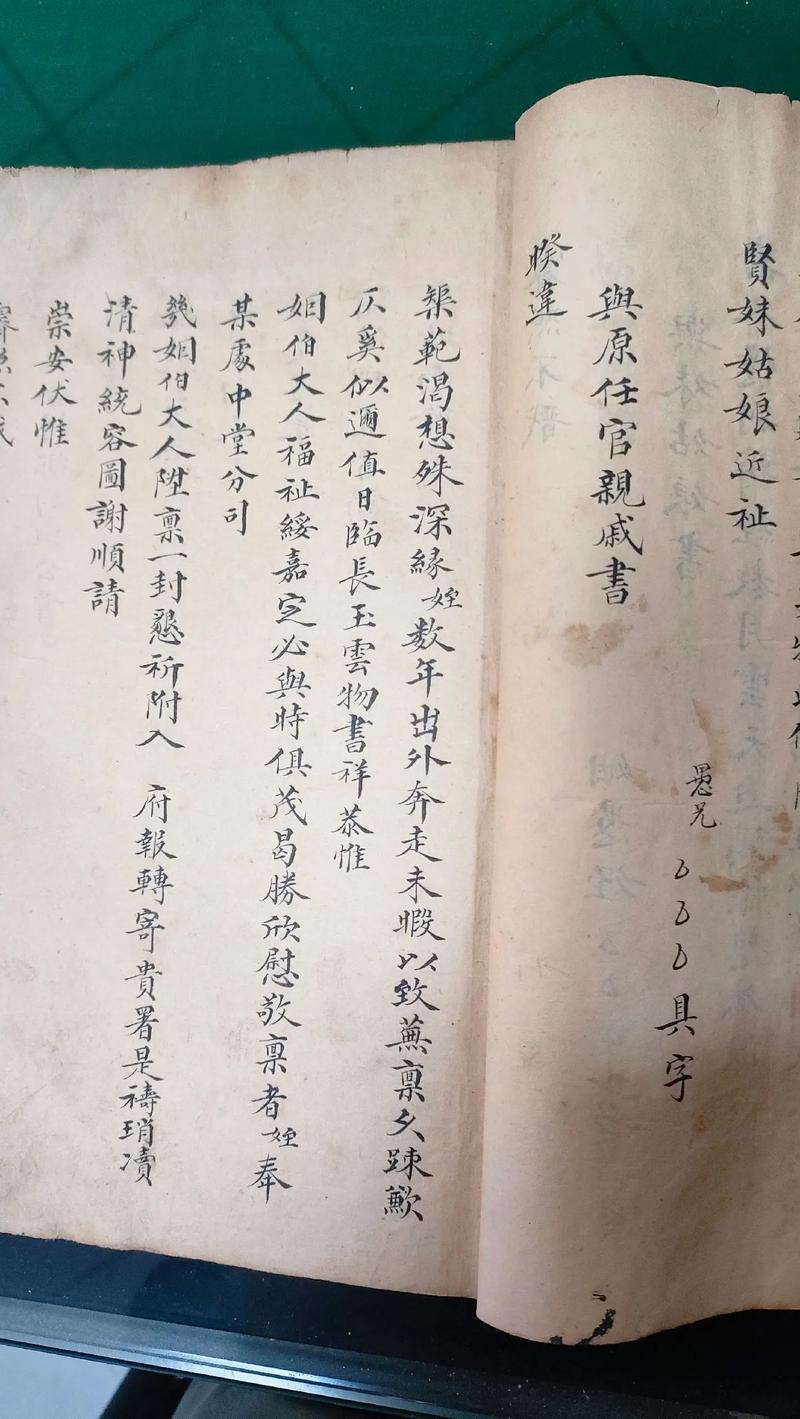 賢妹姑娘近祉
愚兄 具字
與原任官親戚書
睽違
榘範渴想殊深緣姪数年出外奔走未暇以致蕪稟久踈歉
仄奚似邇值日臨長至雲物書祥恭惟
姻伯大人福祉綏嘉定必與時俱茂曷勝欣慰敬稟者姪奉
某處中堂分司
幾姻伯大人陞稟一封懇祈附入 府報轉寄貴署是禱瑣凟
清神統容圖謝順請
崇安伏惟